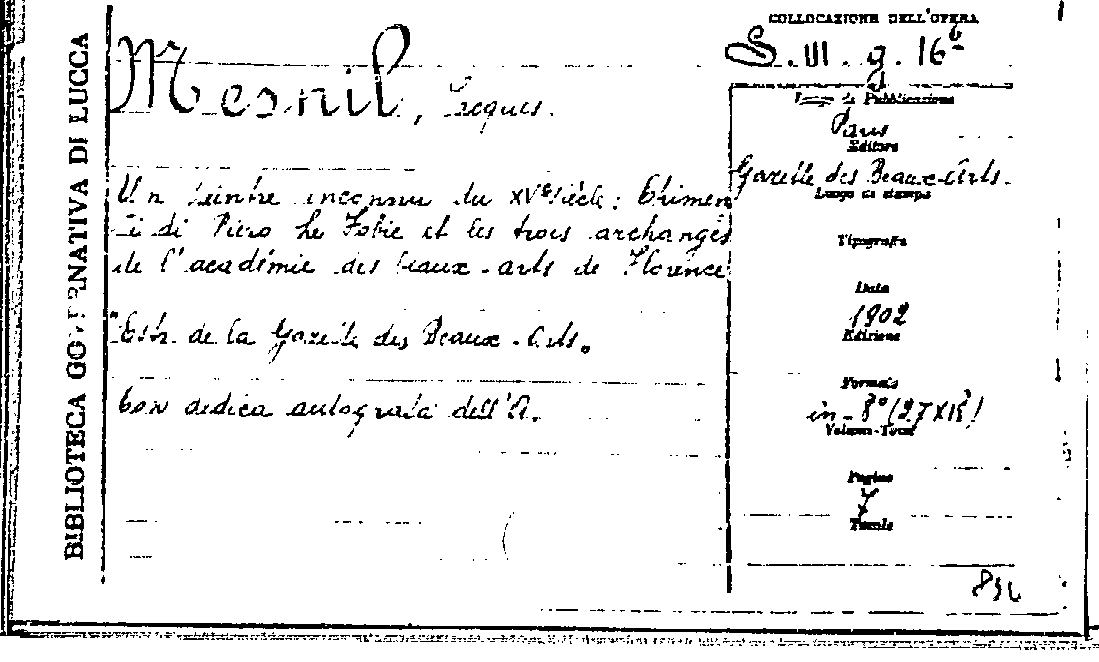 BIBLIOTECA GOVERNATIVA DI LUCCA
COLLOCAZIONE DELL'OPERA
S. III. g. 16
Mesnil, Jacques.
Luogo di Pubblicazione
Paris
Editore
Gazette des Beaux-Arts.
Luogo di stampa
Un peintre inconnu du XVe siècle: Chimen
ti di Piero Le Tobie et les trois archanges
de l'académie des beaux-arts de Florence
Tipografia
Data
1902
Edizione
Estr. de la Gazette des Beaux-Arts.
Formato
in-8° (27X18)
Volumi-Tomi
Con dedica autografa dell'A.
Pagine
7
Tavole